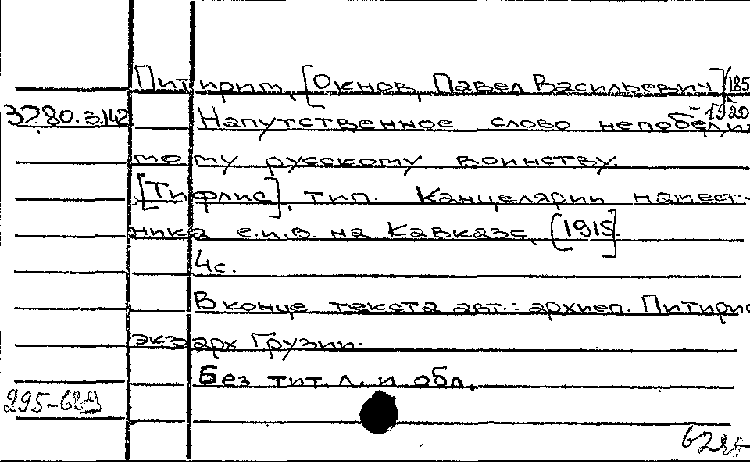 Питирим, [Окнов, Павел Васильевич] (185
- 1920
3780.3142
Напутственное слово непобеди
мому русскому воинству.
[Тифлис], тип. Канцелярии намест-
ника е.и.в. на Кавказе, [1915].
4с.
В конце текста авт.: архиеп. Питирим
экзарх Грузии.
Без тит. л. и обл.
295-62